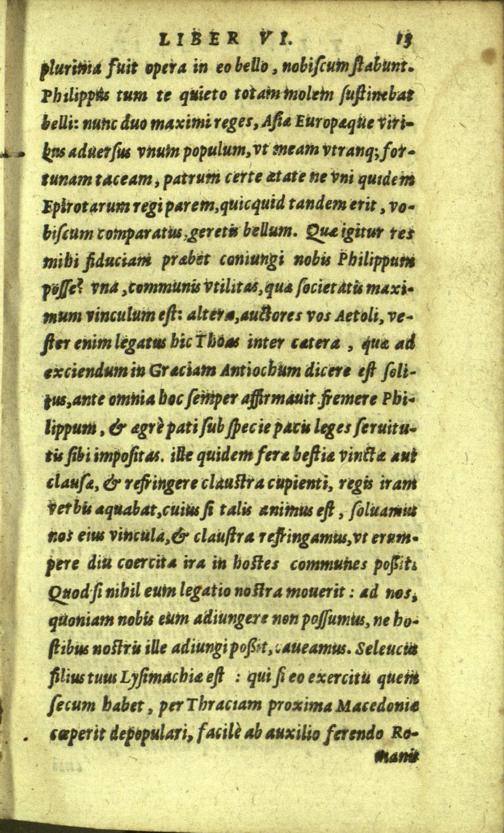 LIBER VI. 13
plurima fuit opera in eo bello, nobiscum stabunt.
Philippus tum te quieto totam molem sustinebat
belli: nunc duo maximi reges, Asiæ Europæque viri-
bus aduersus vnum populum, vt meam vtranq; for-
tunam taceam, patrum certe ætate ne vni quidem
Epirotarum regi parem, quicquid tandem erit, vo-
biscum comparatus, geretis bellum. Quæ igitur res
mihi fiduciam præbet coniungi nobis Philippum
posse? vna, communis vtilitas, quæ societatis maxi-
mum vinculum est: altera, auctores vos Aetoli, ve-
ster enim legatus hic Thoas inter cætera, quæ ad
exciendum in Græciam Antiochum dicere est soli-
tus, ante omnia hoc semper affirmauit fremere Phi-
lippum, & ægrè pati sub specie pacis leges seruitu-
tis sibi impositas. ille quidem feræ bestiæ vinctæ aut
clausæ, & refringere claustra cupienti, regis iram
verbis æquabat, cuius si talis animus est, soluamus
nos eius vincula, & claustra refringamus, vt erum-
pere diu coercita ira in hostes communes poßit.
Quod si nihil eum legatio nostra mouerit: ad nos,
quoniam nobis eum adiungere non possumus, ne ho-
stibus nostris ille adiungi poßit, caueamus. Seleucus
filius tuus Lysimachiæ est: qui si eo exercitu quem
secum habet, per Thraciam proxima Macedoniæ
cœperit depopulari, facilè ab auxilio ferendo Ro-
manis